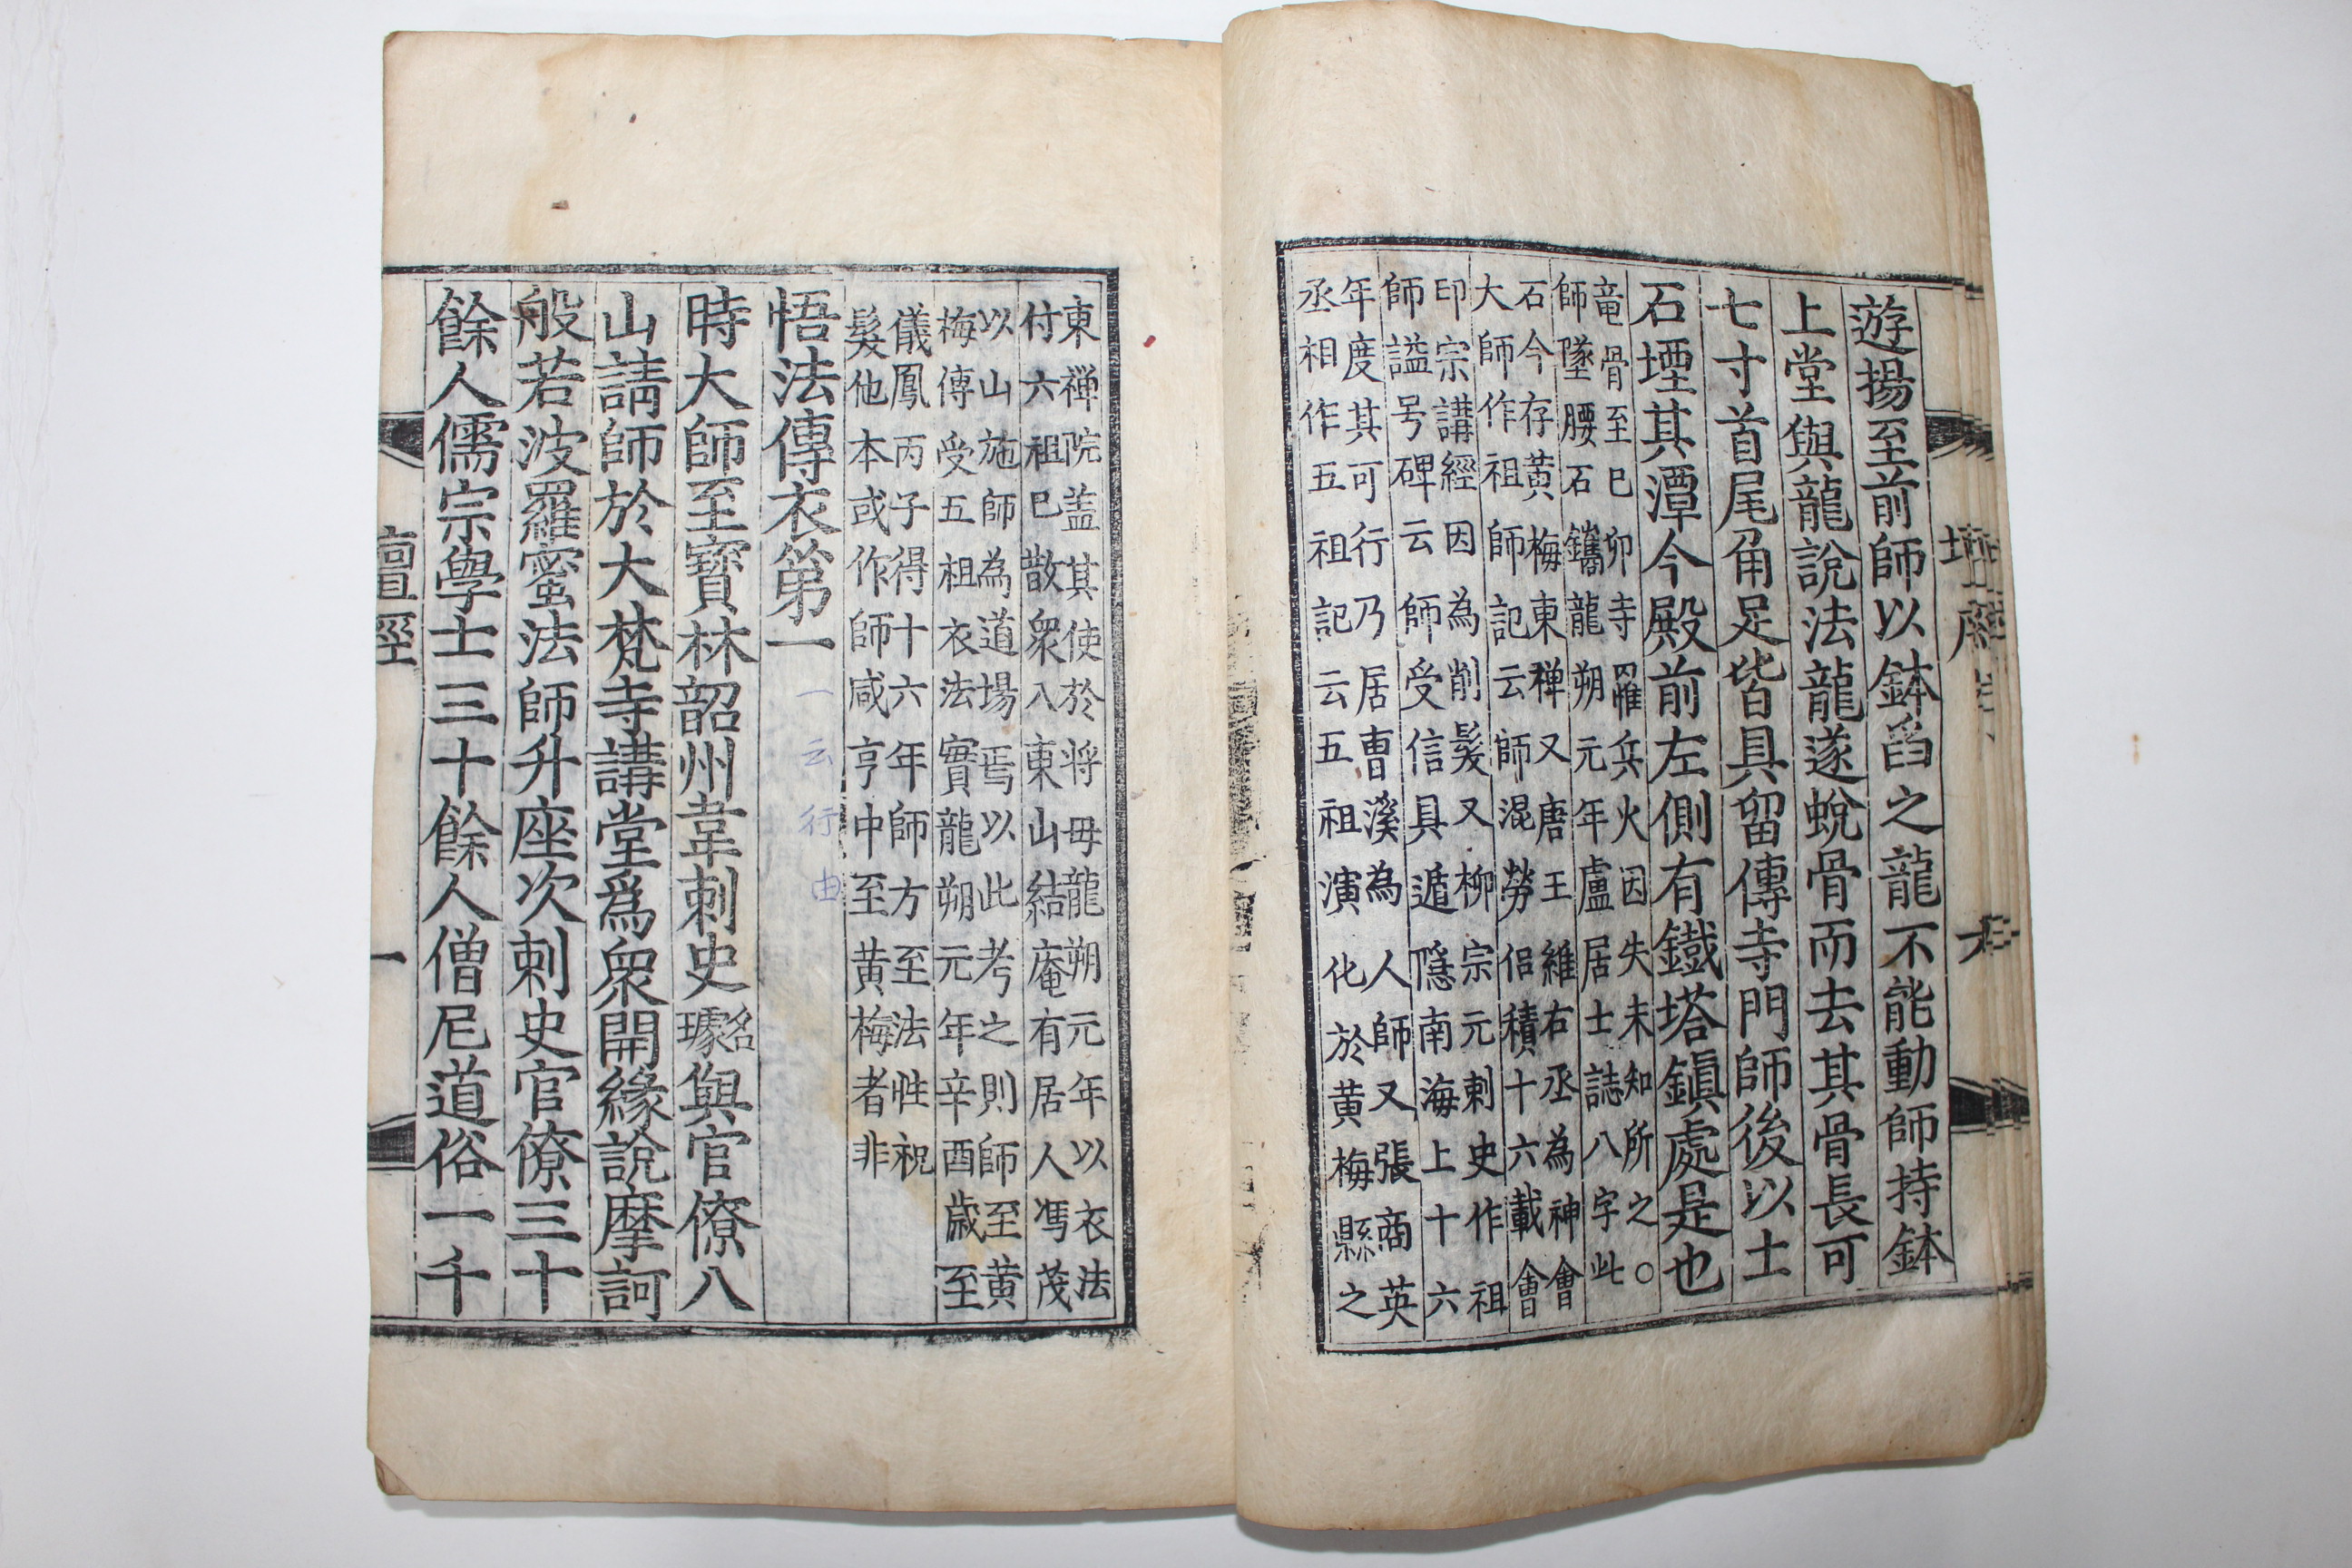 遊揚至前師以鉢舀之龍不能動師持鉢
上堂與龍說法龍遂蛻骨而去其骨長可
七寸首尾角足皆具留傳寺門師後以士
石堙其潭今殿前左側有鐵塔鎭處是也
竜骨至巳卯寺罹兵火因失未知所之○
師墜腰石鐫龍朔元年盧居士誌八字此
石今存黃梅東禅又唐王維右丞為神會
大師作祖師記云師混勞侣積十六載會
印宗講經因為削髮又柳宗元刺史作祖
師謚号碑云師受信具遁隱南海上十六
年度其可行乃居曺溪為人師又張商英
丞相作五祖記云五祖演化於黃梅縣之
壇經
東禅院盖其使於将毋龍朔元年以衣法
付六祖已散衆八東山結庵有居人馮茂
以山施師為道場焉以此考之則師至黃
梅傳受五祖衣法實龍朔元年辛酉歲至
儀鳳丙子得十六年師方至法性祝
髮他本或作師咸亨中至黃梅者非
悟法傳衣第一
一云行由
時大師至寶林韶州韋刺史名璩與官僚八
山請師於大梵寺講堂爲衆開緣說摩訶
般若波羅蜜法師升座次刺史官僚三十
餘人儒宗學士三十餘人僧尼道俗一千
壇經
一